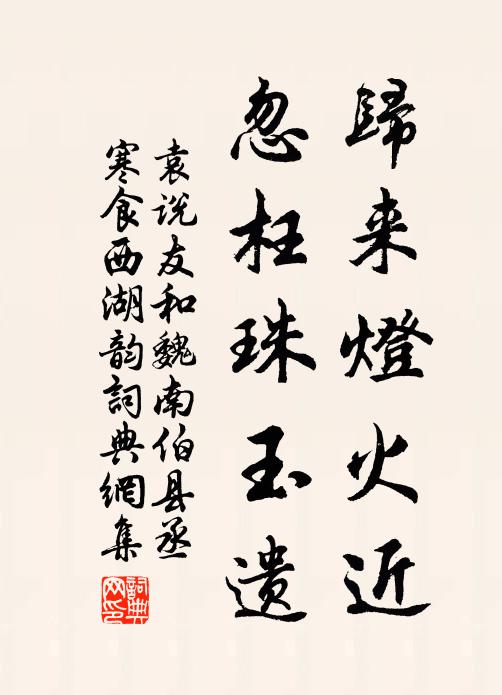 歸来燈火近
忽枉珠玉遺
袁说友和魏南伯县丞
寒食西湖韵詞典網集
詞典網印